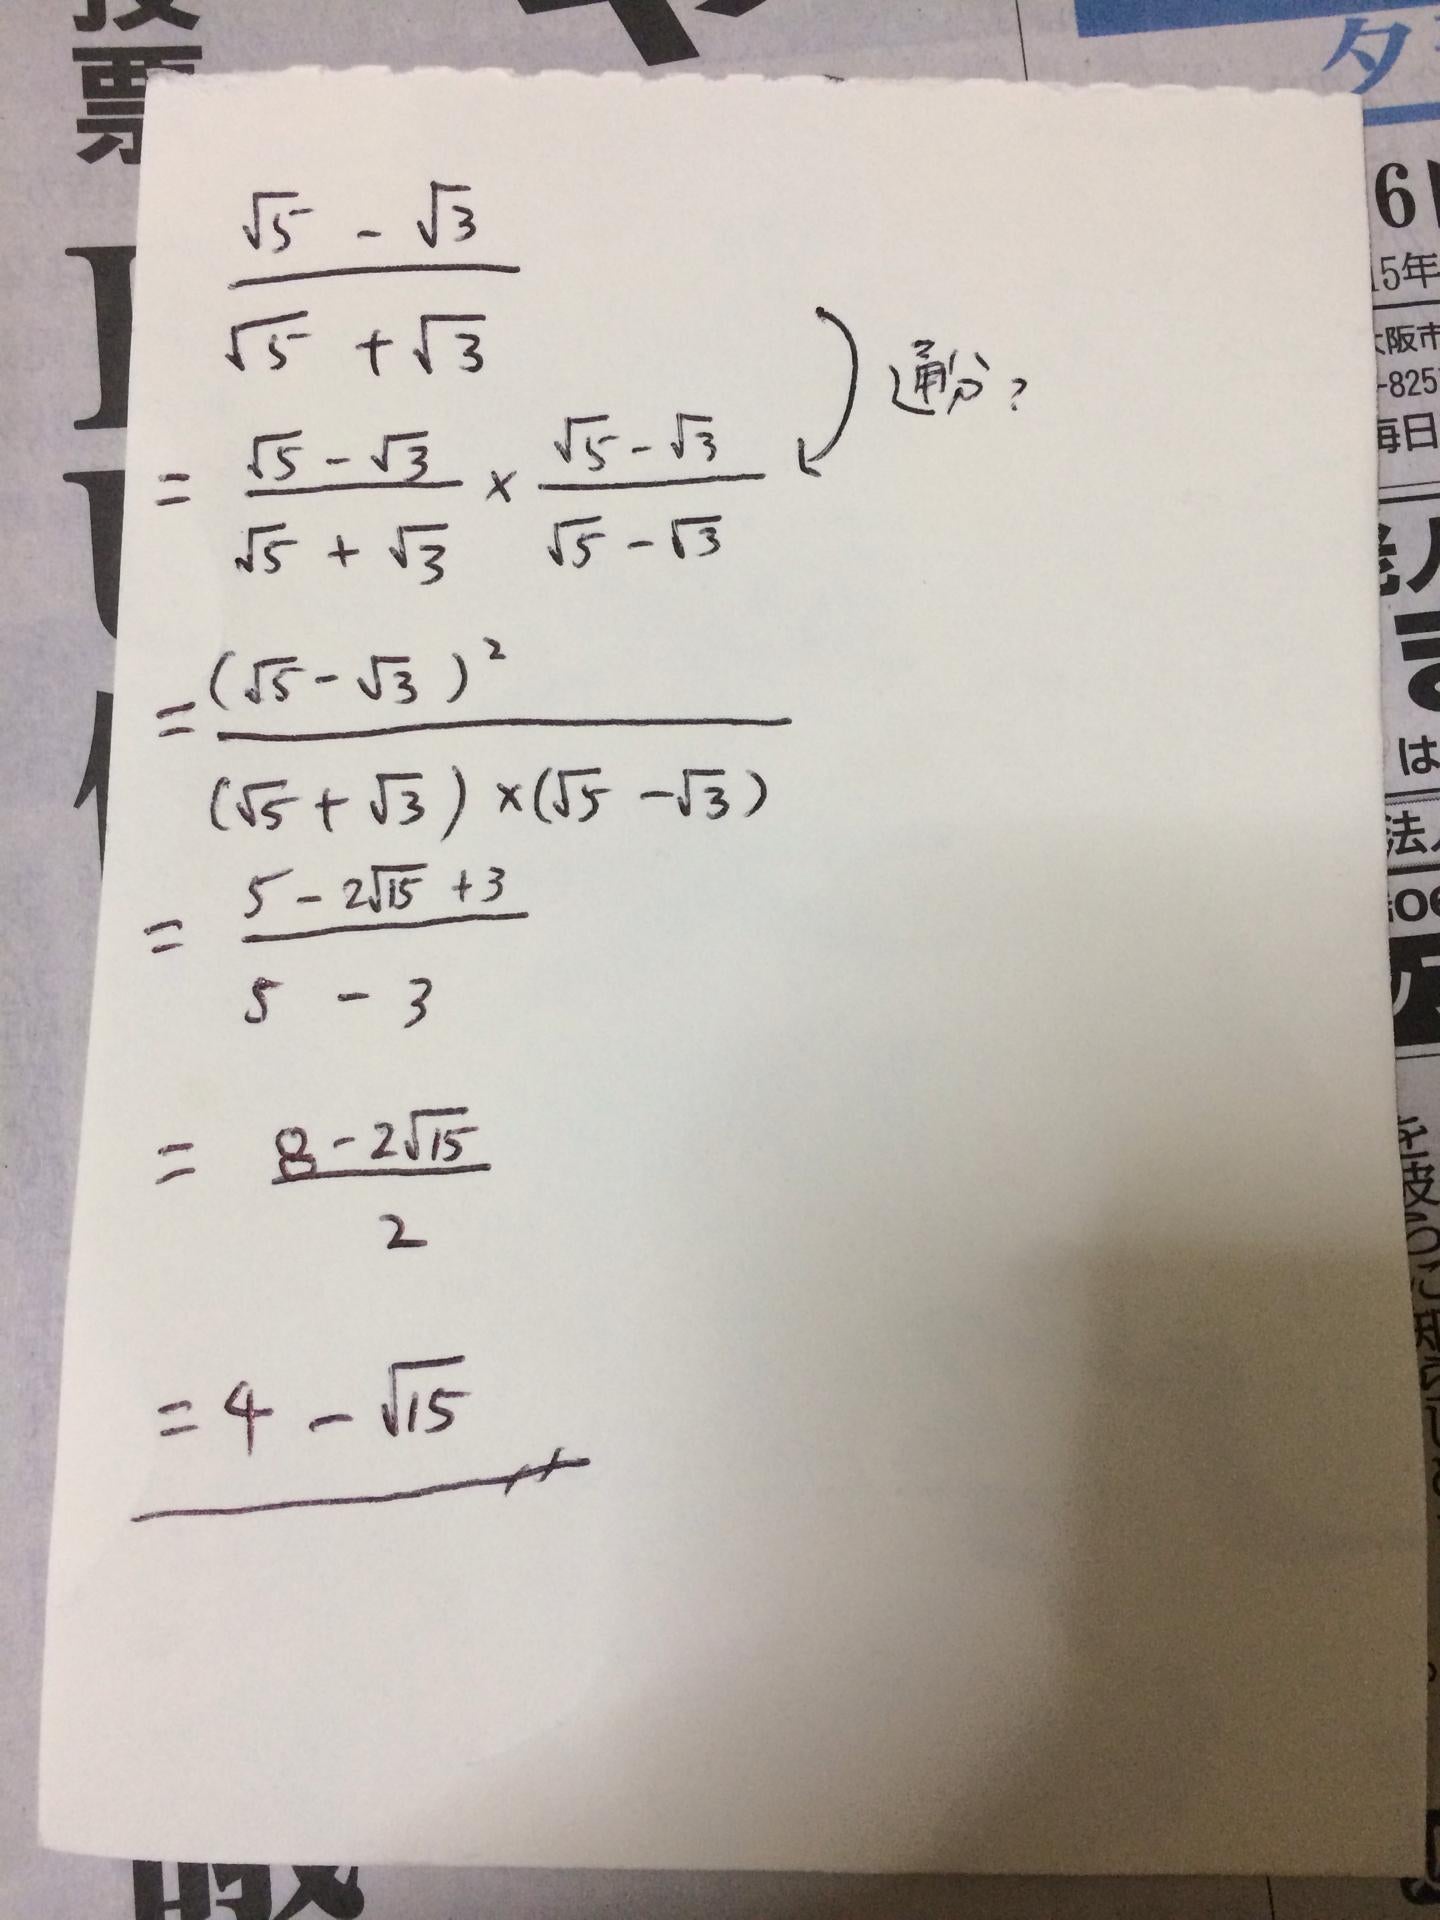 投票
タ
6
15年
大阪市
-825
毎日
は
法人
06
√5 - √3
√5 + √3
通分?
= √5 - √3 × √5 - √3
√5 + √3 √5 - √3
= (√5 - √3)²
(√5 + √3) × (√5 - √3)
= 5 - 2√15 + 3
5 - 3
= 8 - 2√15
2
= 4 - √15